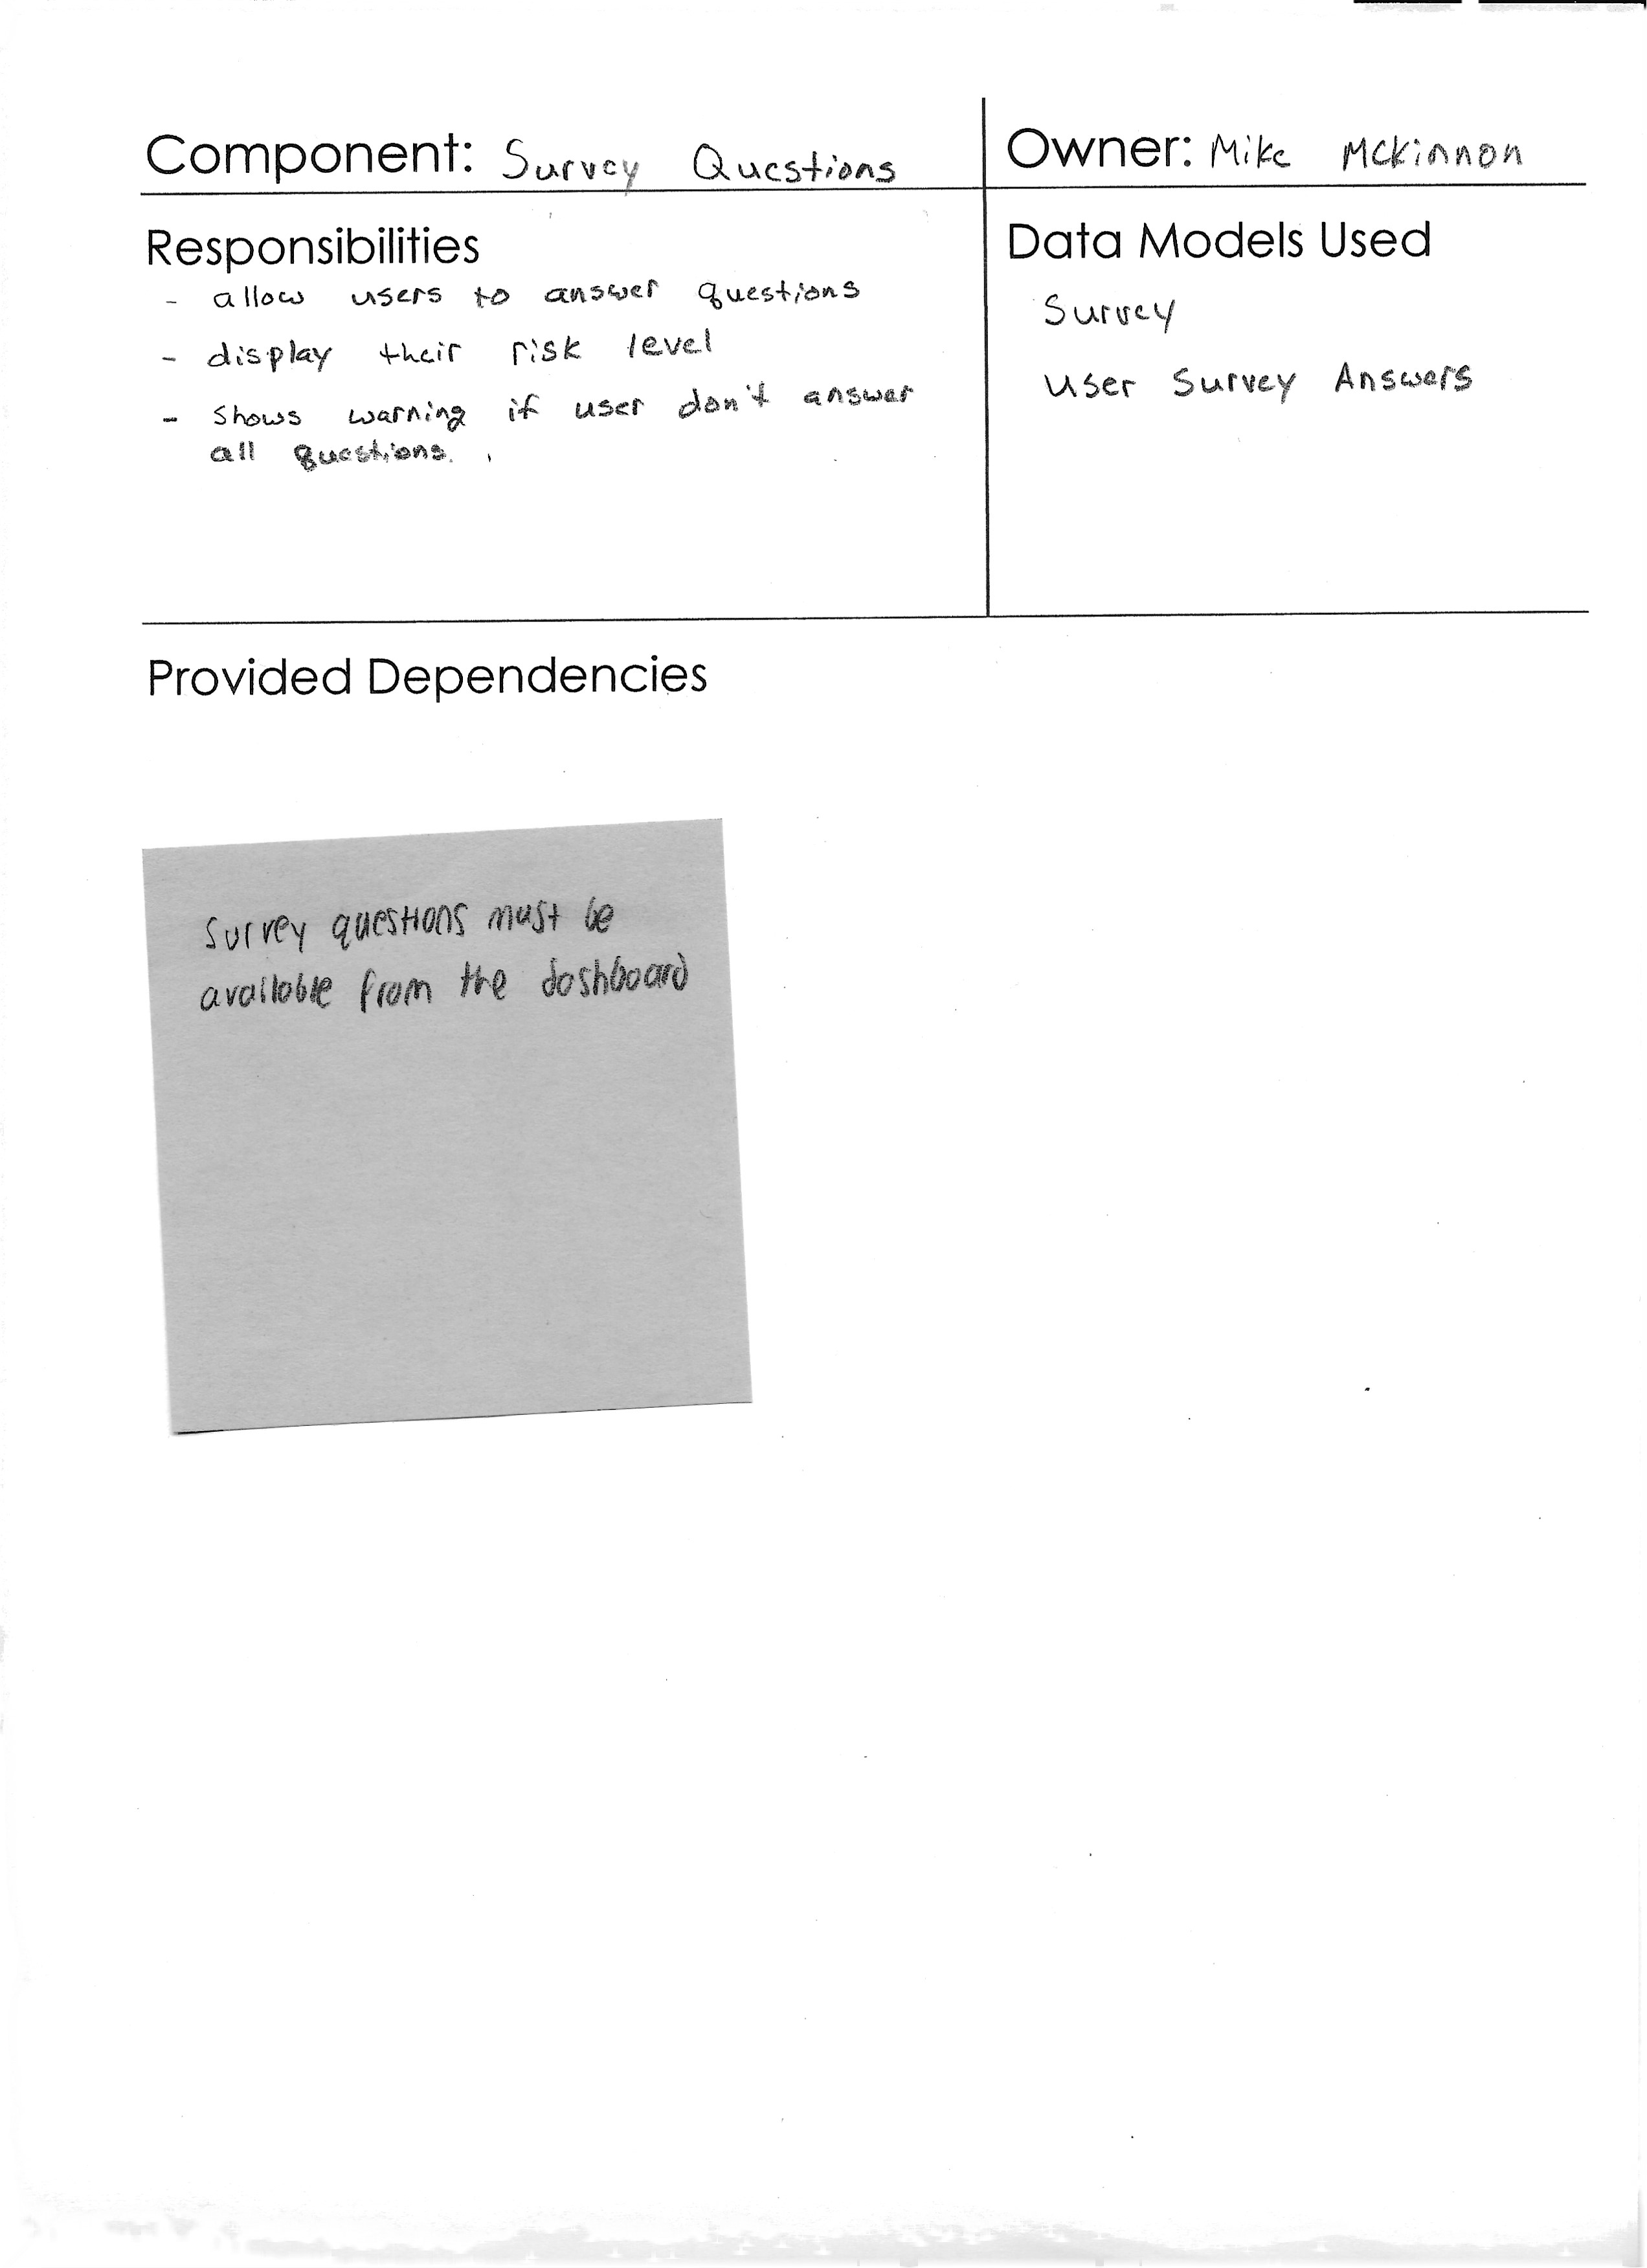 Component: Survey Questions
Owner: Mike McKinnon
Responsibilities
- allow users to answer questions
- display their risk level
- Shows warning if user don't answer
all questions.
Data Models Used
Survey
User Survey Answers
Provided Dependencies
Survey questions must be
available from the dashboard